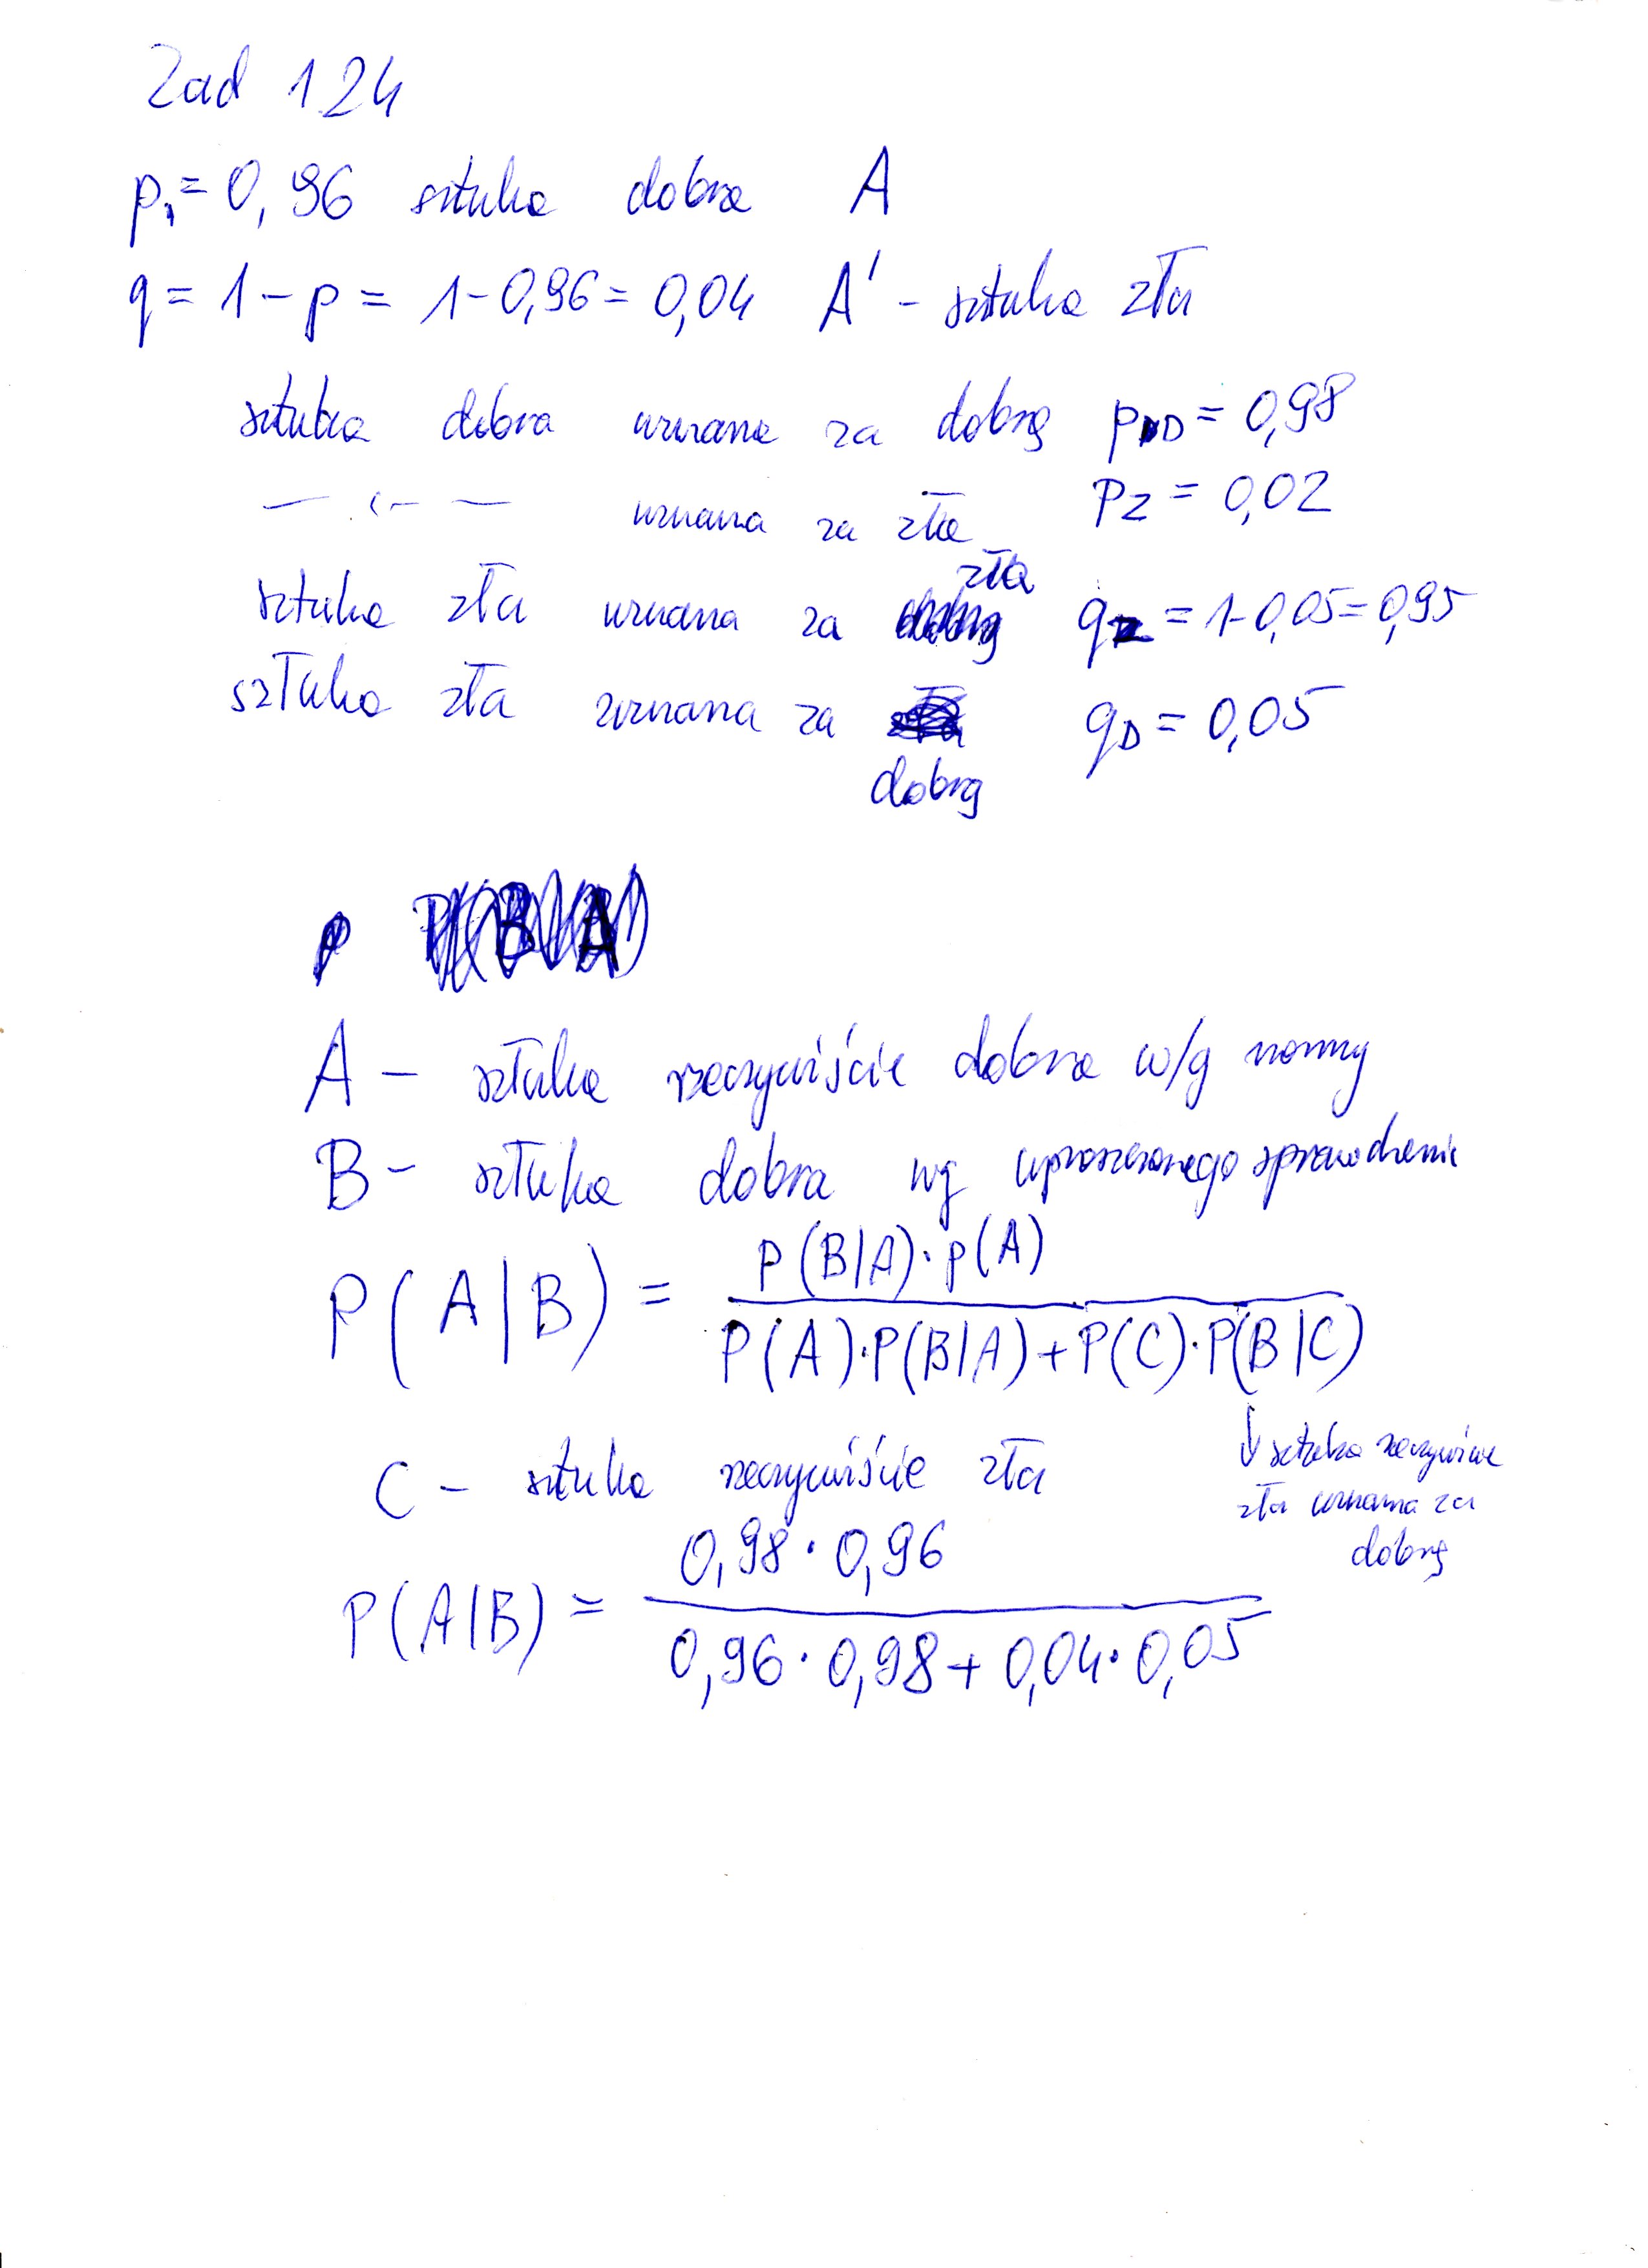 Zad 124
p₁ = 0,96 sztuka dobra A
q = 1 - p = 1 - 0,96 = 0,04 A' - sztuka zła
sztuka dobra uznana za dobrą p_D = 0,98
— " — uznana za złą p_Z = 0,02
sztuka zła uznana za złą q_Z = 1 - 0,05 = 0,95
sztuka zła uznana za dobrą q_D = 0,05
A - sztuka rzeczywiście dobra w/g normy
B - sztuka dobra wg uproszczonego sprawdzenia
P(A|B) = P(B|A) · p(A) / P(A) · P(B|A) + P(C) · P(B|C)
C - sztuka rzeczywiście zła
↓ sztuka rzeczywiście
zła uznana za
dobrą
P(A|B) = 0,98 · 0,96 / 0,96 · 0,98 + 0,04 · 0,05